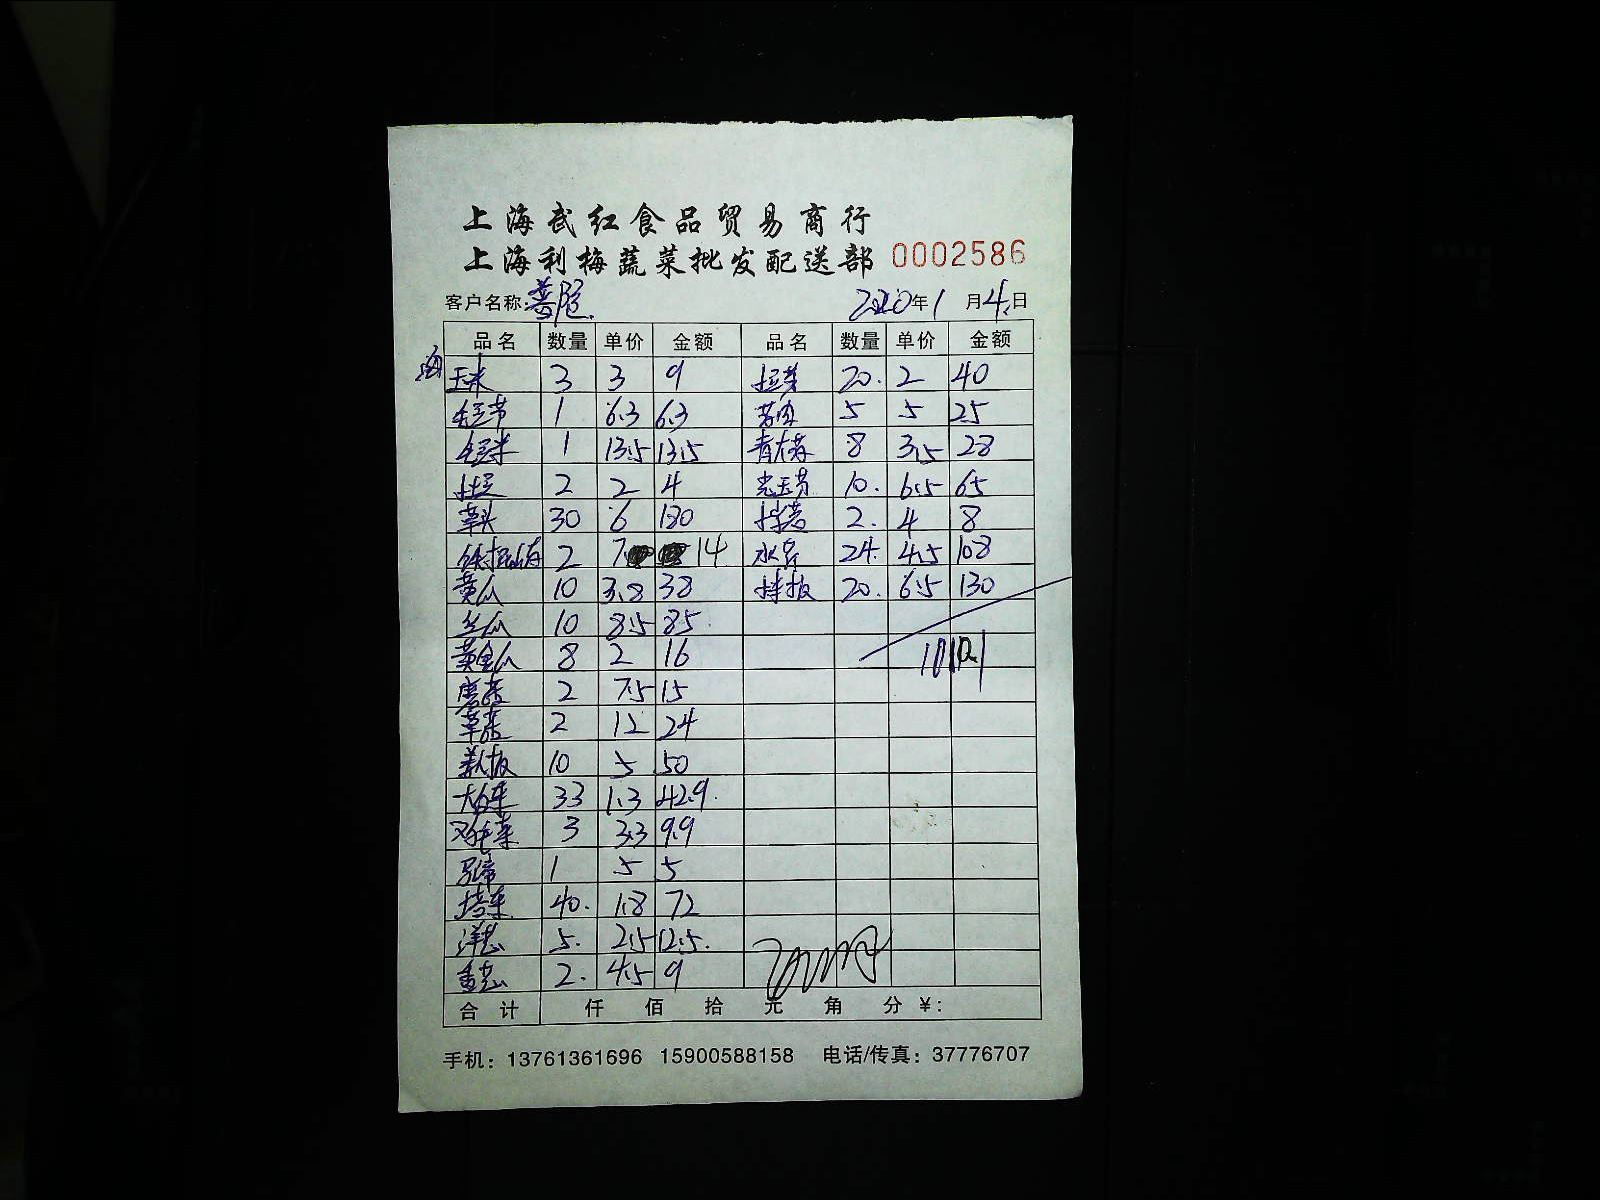 上海武红食品贸易商行
上海利梅蔬菜批发配送部 0002586
客户名称: 普陀 2020年1月4日
品名 数量 单价 金额 品名 数量 单价 金额
玉米 3 3 9 20. 2 40
毛豆节 1 6.3 6.3 5 5 25
毛豆米 1 13.5 13.5 8 3.5 28
土豆 2 2 4 10. 6.5 65
草头 30 6 180 2. 4 8
2 7 14 水芹 24. 4.5 108
黄瓜 10 3.8 38 20. 6.5 130
丝瓜 10 8.5 85
黄金瓜 8 2 16 1010.1
2 7.5 15
2 12 24
10 5 50
大白菜 33 1.3 42.9
3 3.3 9.9
马蹄 1 5 5
塔菜 40. 1.8 72
洋葱 5. 2.5 12.5
香葱 2. 4.5 9
合计 仟 佰 拾 元 角 分 ¥:
手机: 13761361696 15900588158 电话/传真: 37776707